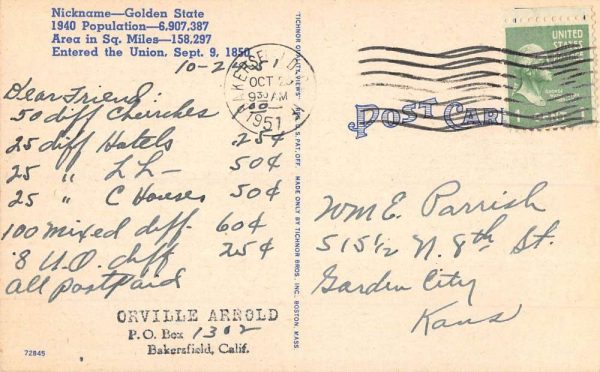 Nickname—Golden State
1940 Population—6,907,387
Area in Sq. Miles—158,297
Entered the Union, Sept. 9, 1850
10-2-51
Dear Friend:
50 diff Churches
25 diff Hotels .25¢
25 " LL- 50¢
25 " C Houses 50¢
100 mixed diff. 60¢
8 U.O. diff 25¢
all postpaid
ORVILLE ARNOLD
P.O. Box 1302
Bakersfield, Calif.
72845
MADE ONLY BY TICHNOR BROS. INC., BOSTON, MASS.
OCT
9 30 AM
1951
POST CARD
UNITED
STATES
Wm E. Parrish
515½ N. 8th St.
Garden City
Kans